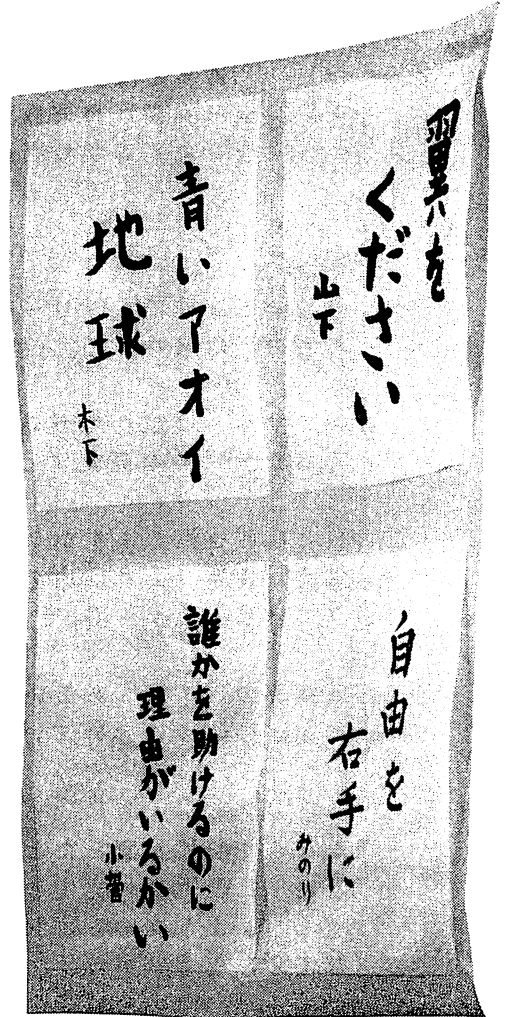 翼を
ください
山下
青いアオイ
地球
木下
自由を
右手に
みのり
誰かを助けるのに
理由がいるかい
小菅